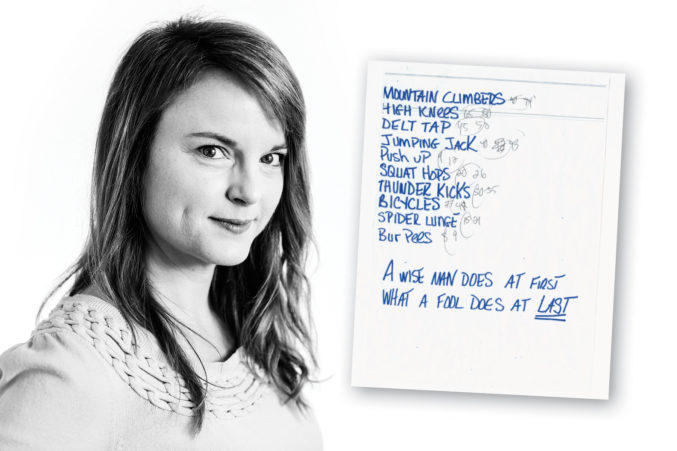 MOUNTAIN CLIMBERS
HIGH KNEES
DELT TAP 45 50
JUMPING JACK
PUSH UP 12
SQUAT HOPS 20 26
THUNDER KICKS 20 25
BICYCLES
SPIDER LUNGE
BUR PEES 8 9
A WISE MAN DOES AT FIRST
WHAT A FOOL DOES AT LAST